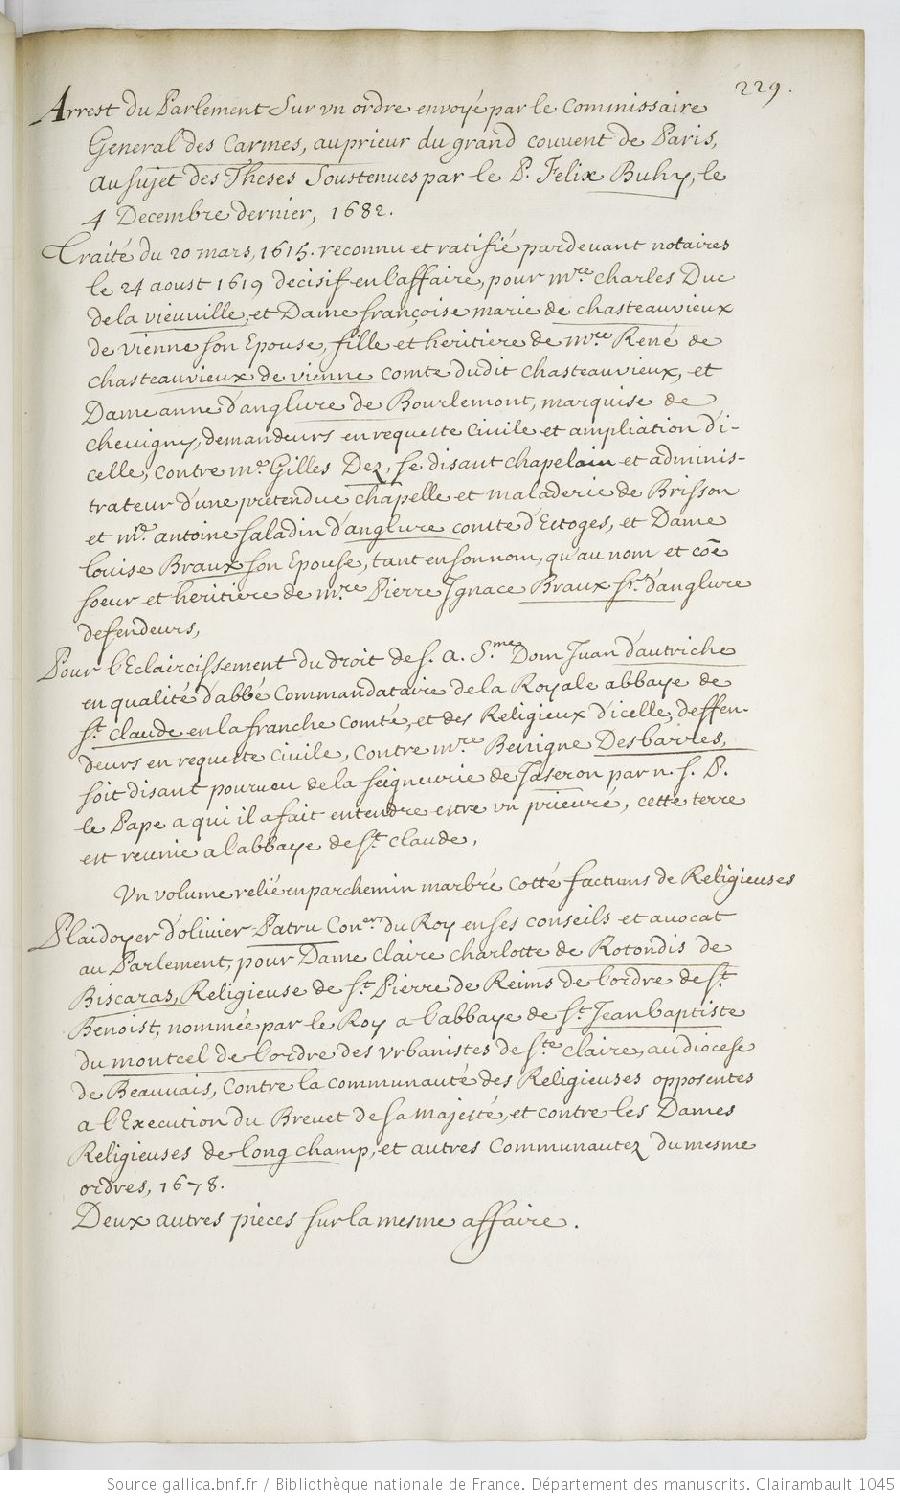 229.
Arrest du Parlement Sur vn ordre envoyé par le Commissaire
General des Carmes, au prieur du grand couvent de Paris,
au sujet des Theses Soustenues par le P. Felix Buhy, le
4 Decembre dernier, 1682.
Traité du 20 mars, 1615. reconnu et ratifié pardevant notaires
le 24 aoust 1619 decisif en l'affaire, pour mre. Charles Duc
de la vieuville, et Dame françoise marie de chasteauvieux
de vienne son Epouse, fille et heritiere de mre. René de
chasteauvieux de vienne comte dudit chasteauvieux, et
Dame anne d'anglure de Bourlemont, marquise de
chevigny, demandeurs en requeste Civile et ampliation d'i-
celle, contre me. Gilles Dez, se disant chapelain et adminis-
trateur d'une pretendue chapelle et maladerie de Brisson
et mre. antoine Saladin d'anglure comte d'Etoges, et Dame
louise Braux son Epouse, tant en son nom, qu'au nom et cõe
soeur et heritiere de mre. Pierre Ignace Braux Sr. d'anglure
defendeurs,
Pour l'Eclaircissement du droit de S. A. S.me Dom Juan d'autriche
en qualité d'abbé Commandataire de la Royale abbaye de
St. Claude en la franche Comté, et des Religieux d'icelle, deffen-
deurs en requeste Civile, Contre mre. Benigne Desbarres,
soit disant pourveu de la Seigneurie de Jaseron par n. S. P.
le Pape a qui il a fait entendre estre vn prieuré, cette terre
est reunie a l'abbaye de St. Claude,
Vn volume relié en parchemin marbré cotté factums de Religieuses
Plaidoyer d'olivier Patru Coner. du Roy en ses conseils et avocat
au Parlement, pour Dame Claire Charlotte de Rotondis de
Biscaras, Religieuse de St. Pierre de Reims de l'ordre de St.
Benoist, nommée par le Roy a l'abbaye de St. Jean baptiste
du montcel de l'ordre des Vrbanistes de Ste. Claire, au diocese
de Beauvais, Contre la communauté des Religieuses opposentes
a l'Execution du Brevet de sa majesté, et contre les Dames
Religieuses de long champ, et autres Communautez du mesme
ordres, 1678.
Deux autres pieces sur la mesme affaire.
Source gallica.bnf.fr / Bibliothèque nationale de France. Département des manuscrits. Clairambault 1045